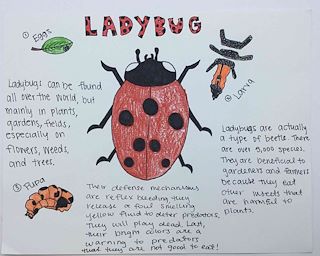 LADYBUG
① Eggs
② Larva
Ladybugs can be found
all over the world, but
mainly in plants,
gardens, fields,
especially on
flowers, weeds,
and trees.
Ladybugs are actually
a type of beetle. There
are over 5,000 species.
They are beneficial to
gardeners and farmers
because they eat
other insects that
are harmful to
plants.
③ Pupa
Their defense mechanisms
are reflex bleeding they
release a foul smelling
yellow fluid to deter predators.
They will play dead. Last,
their bright colors are a
warning to predators
that they are not good to eat!